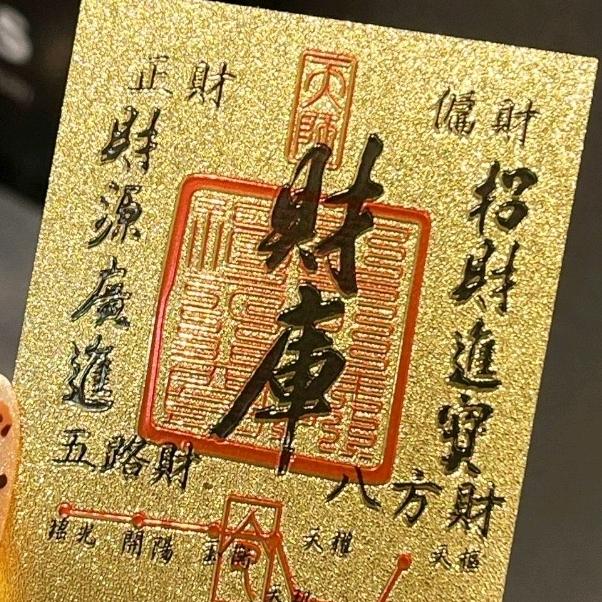 正財
天師
偏財
財源廣進
財庫
招財進寶
五路財
八方財
搖光 開陽 玉衡 天權 天樞
令